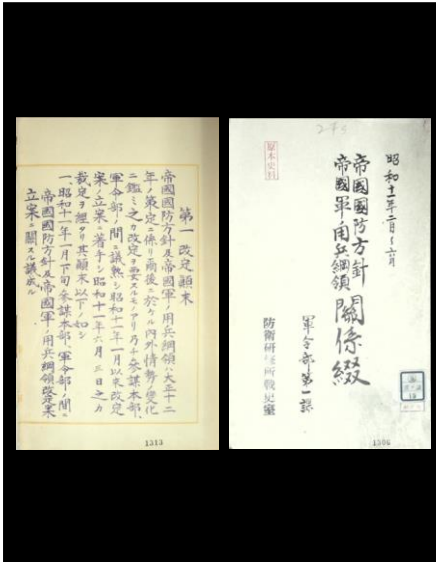 昭和十一年二月～六月
帝國國防方針
帝國軍ノ用兵綱領
關係綴
軍令部第一課
防衛研修所戰史室
原本史料
第一 改定顛末
帝國國防方針及帝國軍ノ用兵綱領ハ大正十二
年ノ策定ニ係リ爾後ニ於ケル内外情勢ノ變化
ニ鑑ミ之カ改定ヲ要スルモノアリ乃チ參謀本部、
軍令部ノ間ニ議熟シ昭和十一年一月以來改定
案ノ立案ニ着手シ昭和十一年六月三日之カ
裁定ヲ經タリ其顛末以下ノ如シ
一、昭和十一年一月下旬參謀本部、軍令部ノ間ニ
帝國國防方針及帝國軍ノ用兵綱領改定案
立案ニ關スル議成ル
1313